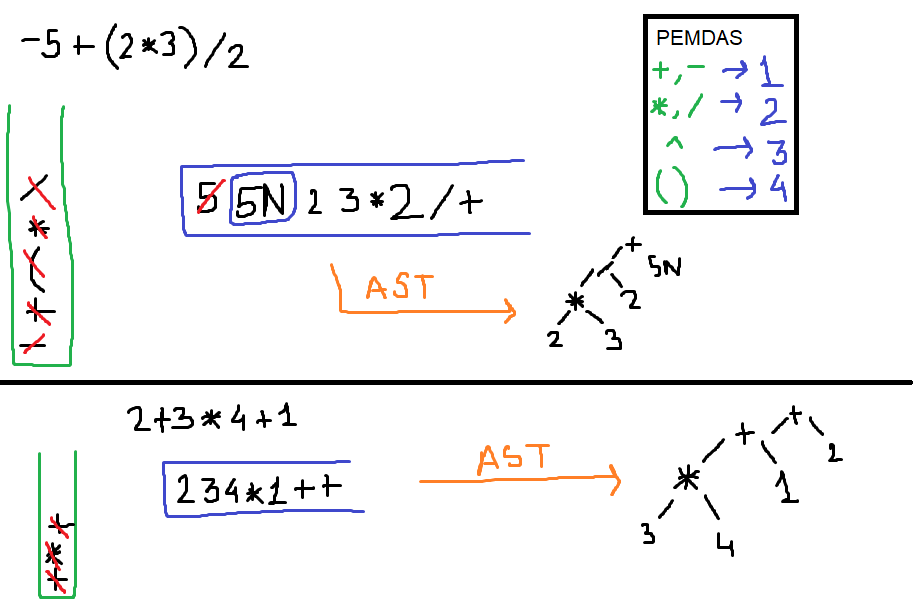 -5+(2*3)/2
PEMDAS
+,- → 1
*,/ → 2
^ → 3
() → 4
5 5N 2 3 * 2 / +
- + / ( * )
AST
+
/ 5N
* 2
2 3
2+3*4+1
2 3 4 * 1 + +
+ * +
AST
+
+ 2
* 1
3 4